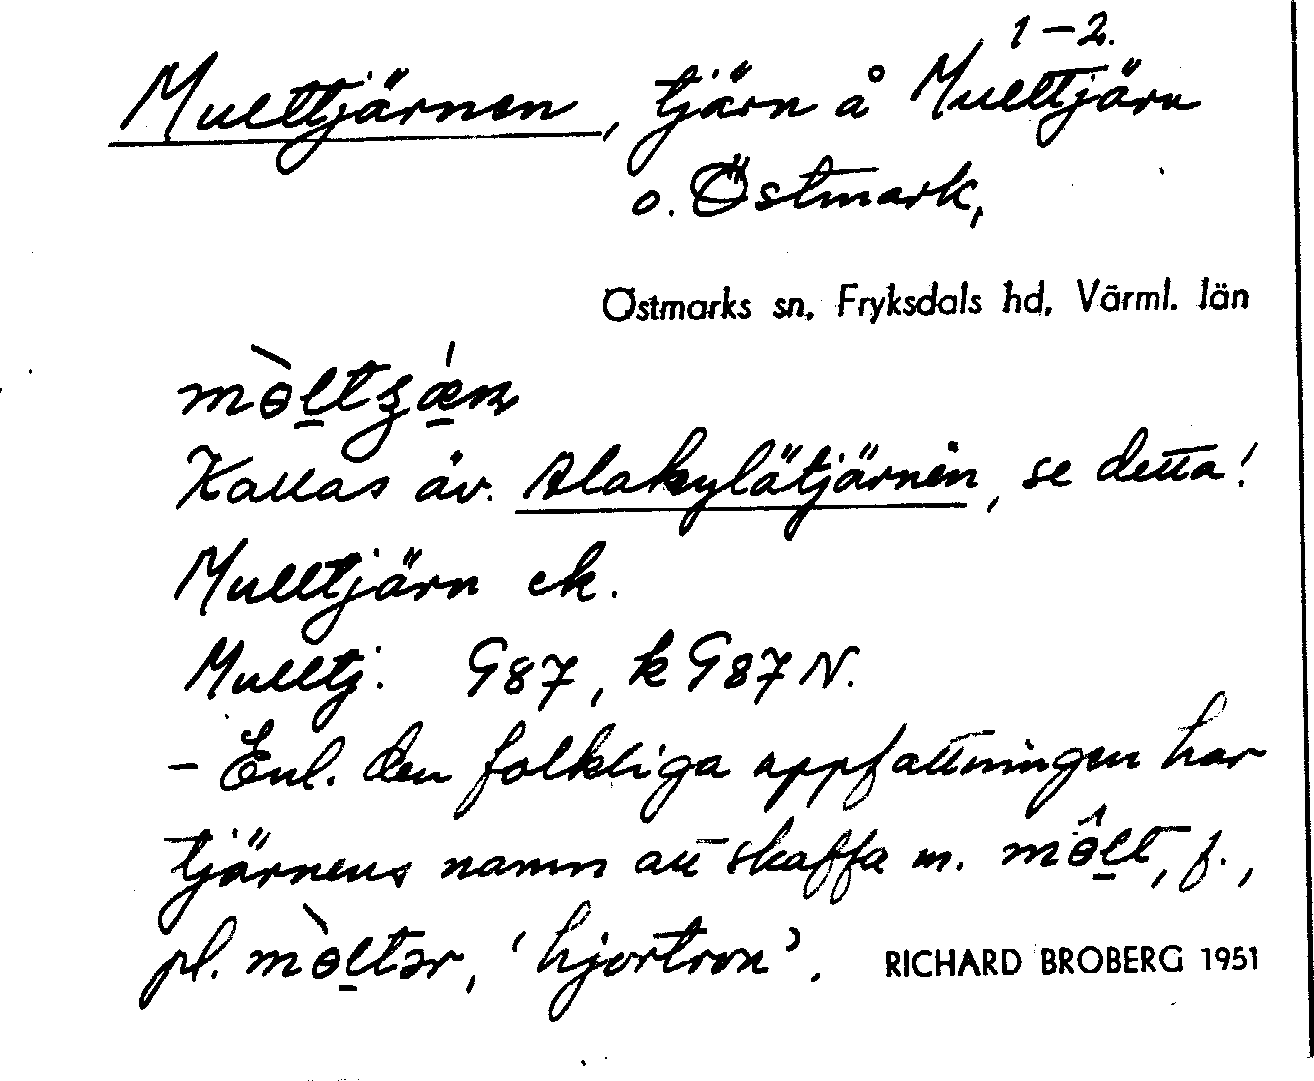 1–2.
Mulltjärnen, tjärn å Mulltjärn
o. Östmark,
Östmarks sn, Fryksdals hd, Värml. län
Kallas äv. Alakylätjärnen, se detta!
Mulltjärn ek.
Mulltj. G87, k G87 N.
– Enl. den folkliga uppfattningen har
tjärnens namn att skaffa m. môlt, f.,
pl. mòltər, 'hjortron'. RICHARD BROBERG 1951